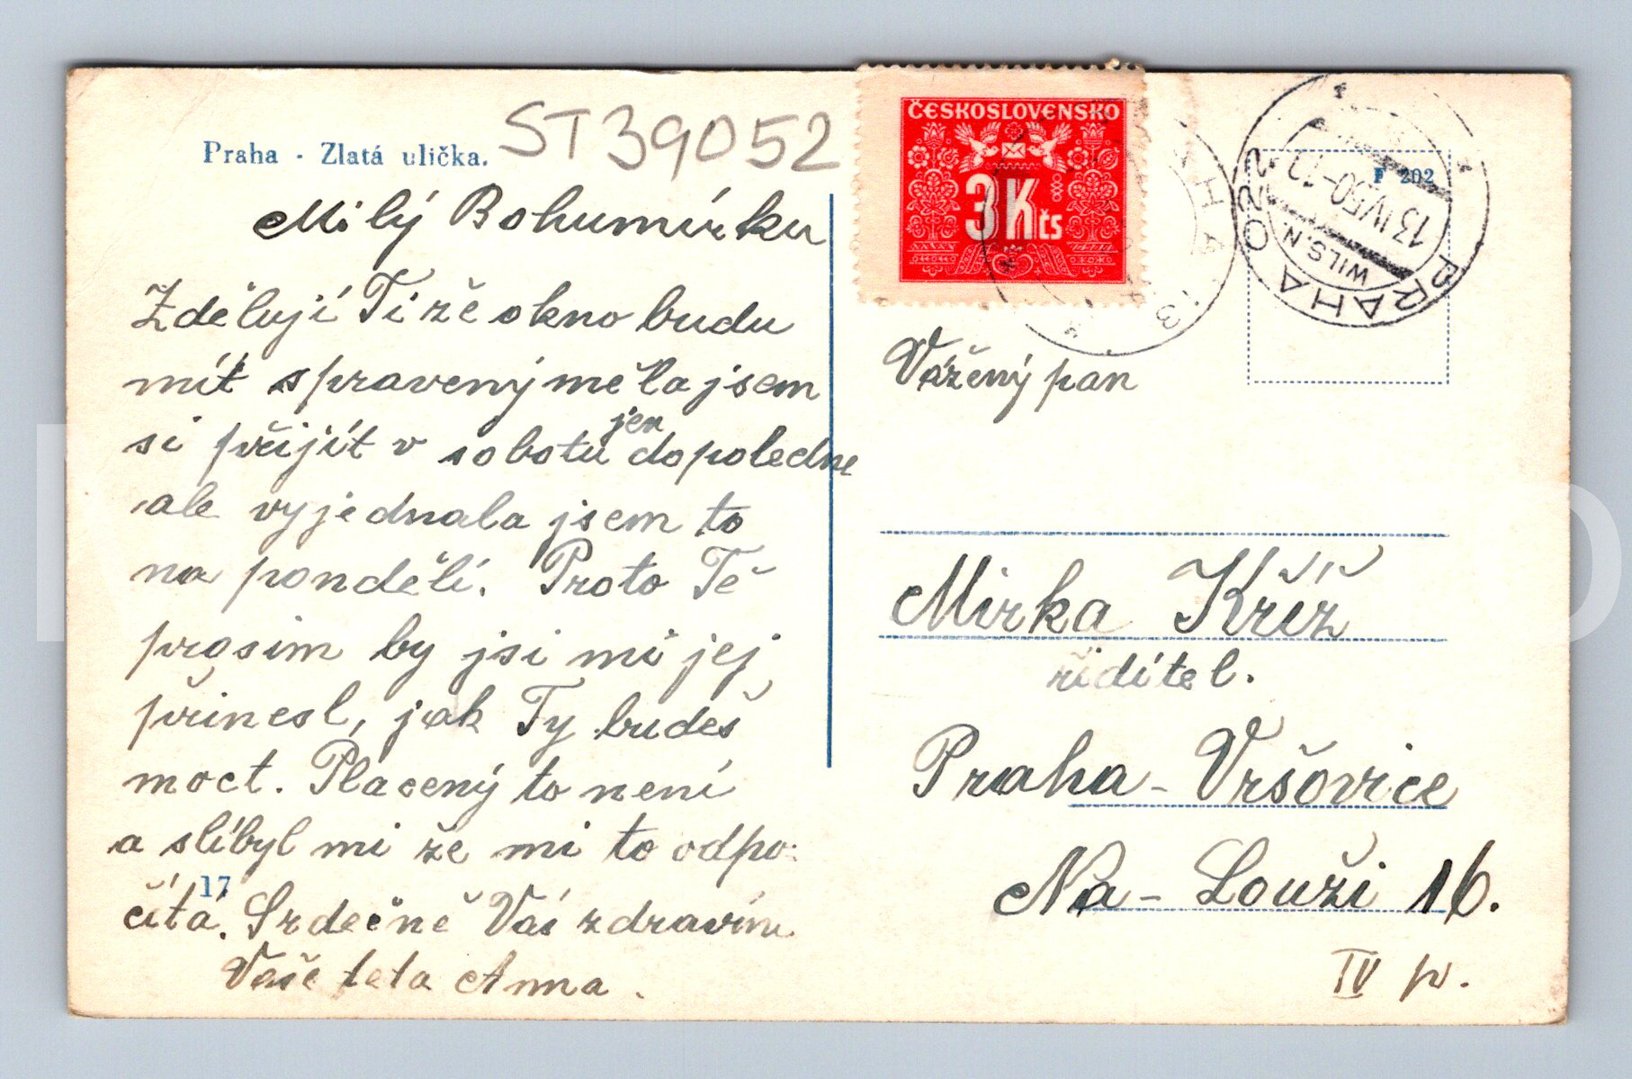 Praha - Zlatá ulička.
ST39052
Milý Bohumírku
Zdělují Ti že okno budu
mít spravený měla jsem
si přijít v sobotu jen dopoledne
ale vyjednala jsem to
na pondělí. Proto Tě
prosim by jsi mi jej
přinesl, jak Ty budeš
moct. Placený to není
a slíbyl mi že mi to odpo-
17
čítá. Srdečně Vás zdravím
Vaše teta Anna.
ČESKOSLOVENSKO
3 Kčs
PRAHA 022
WILS.N.
13 IV 50-1
F 202
Vážený pán
Mirka Kříž
řidítel.
Praha - Vršovice
Na - Louži 16.
IV p.